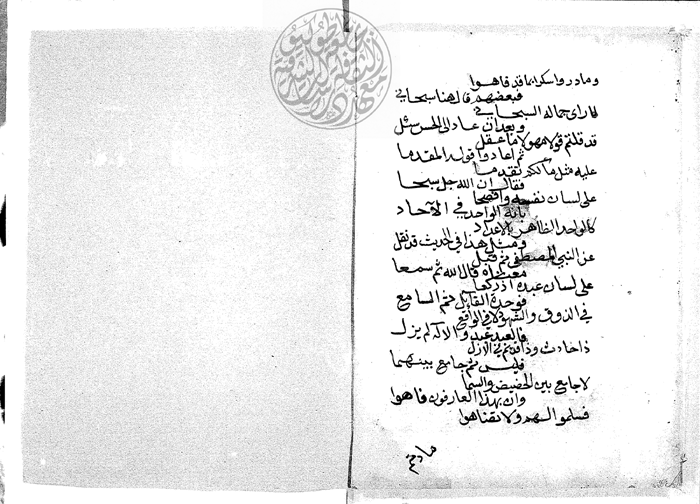 وما دروا سكرا بما قد فاهوا
فبعضهم قال هنا سبحاني
لما رأى جماله السبحاني
وبعد ان عاد الى الحس سئل
قد قلتم قولا مهولا ما عقل
ثم اعادوا قوله المقدما
عليه قيل ما لكم تقدما
فقال ان الله جل سبحا
على لسان نفسه وافصحا
بانه الواحد في الآحاد
كالواحد الظاهر بالاعداد
ومثل هذا في الحديث قد نقل
عن النبي المصطفى ثم قبل
معناه قال الله ثم سمعا
على لسان عبده اذ ركعا
فوحدة القائل ثم السامع
في الذوق والشهود لا في الواقع
فالعبد عبد والاله لم يزل
ذا حادث وذا قديم في الازل
فليس ثم جامع بينهما
لا جامع بين الحضيض والسما
وان بهذا العارفون فاهوا
فسلموا اليهم ولا تقناهوا